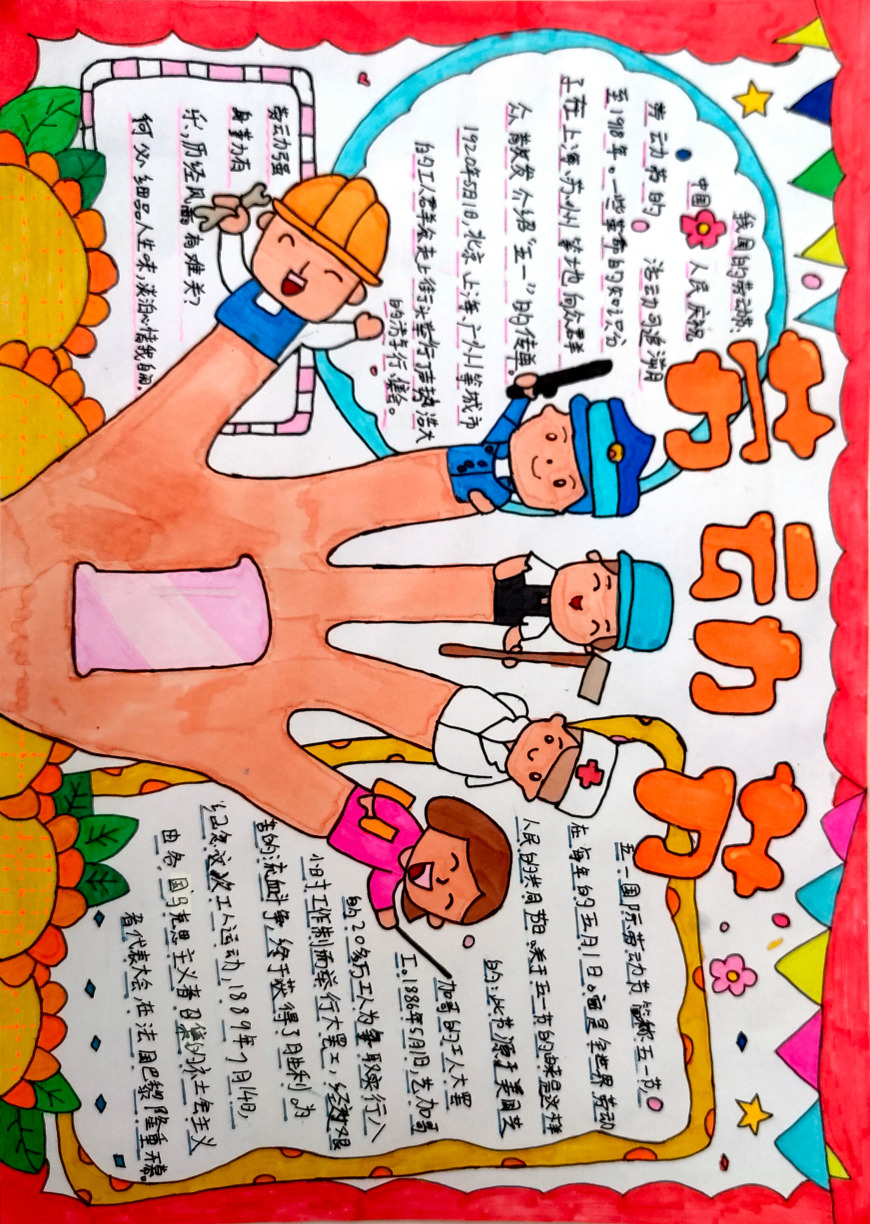 劳动节
我国的劳动节
中国 人民庆祝
劳动节的 活动可追溯月
至1918年。一些革命的知识分
子在上海、苏州等地向众群
众散发介绍“五一”的传单。
1920年5月1日,北京、上海、广州等城市
的工人群众走上街头举行了声势浩大
的游行、集会。
劳动强
身 力有
乐,历经风霜有难关?
何必细品人生味,淡泊心情我自闲。
五一国际劳动节简称五一节
在每年的五月1日。它是全世界劳动
人民的共同节日。关于五一节的由来是这样
的:此节源于美国芝
加哥的工人大罢
工。1886年5月1日,芝加哥
的20多万工人为争取实行八
小时工作制而举行大罢工,经过艰
苦的流血斗争,终于获得了胜利。为
纪念这次工人运动,1889年7月14日,
由各国马克思主义者召集的社会主义
者代表大会,在法国巴黎隆重开幕。